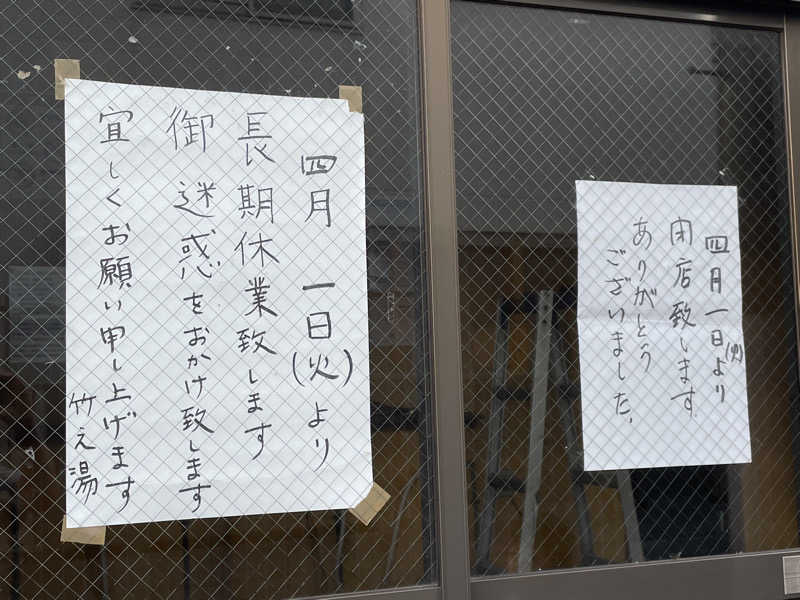 四月一日(火)より
長期休業致します
御迷惑をおかけ致します
宜しくお願い申し上げます
竹之湯
四月一日(火)より
閉店致します。
ありがとう
ございました。